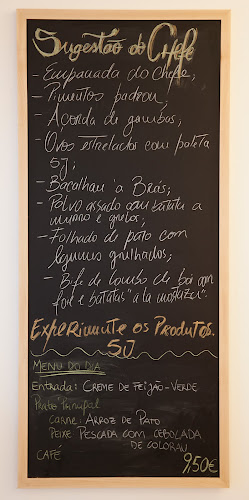 Sugestão do Chefe
- Empanada do chefe;
- Pimentos padron;
- Açorda de gambas;
Ovos estrelados com paleta
5J;
- Bacalhau à Brás;
- Polvo assado com batata a
murro e grelos;
- Folhado de pato com
legumes grelhados;
- Bife de lombo de boi com
foie e batatas "à la mostaza".
Experimente os Produtos
5J
Menu do dia
Entrada: Creme de Feijão-Verde
Prato Principal
Carne: Arroz de Pato
Peixe Pescada com cebolada
de colorau
Café
9,50€